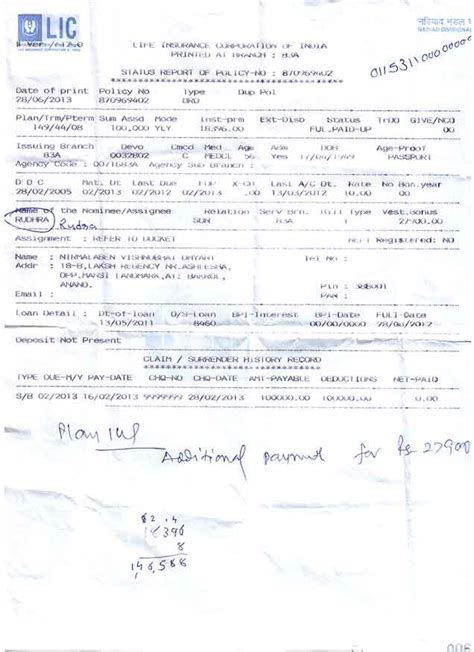 LIC
LIFE INSURANCE CORPORATION OF INDIA
PRINTED AT BRANCH : 83A
STATUS REPORT OF POLICY-NO : 870969402
Date of print Policy No Type Dup Pol
28/06/2013 870969402 ORD
Plan/Trm/Pterm Sum Assd Mode Inst-prm Ext-Disb Status
149/44/08 100,000 YLY 18396.00 FUL.PAID-UP 00
Issuing Branch Devo Cmod Med Age Adm DOB Age-Proof
83A 0032802 C MEDCL 56 Yes PASSPORT
Agency Code : Agency Sub Branch :
D O C Mat. Dt Last Due X-CH Last A/C Dt. Rate No Bon.year
28/02/2005 02/2013 13/03/2012 10.00 00
Name of the Nominee/Assignee Relation Serv Brn. Bill Type Vest.Bonus
RUDHRA SON 83A 1 27900.00
Rudra
Assignment : REFER TO DOCKET No: Registered: NO
Name : NIRMALABEN VISHNUBHAI Tel No :
Addr : 18-B, LAKSH REGENCY NR.ASHLESHA,
OPP.MANSI LANDMARK,AT: BAKROL, Pin : 388001
ANAND. PAN :
Email :
Loan Detail : Dt-of-loan O/S-Loan BPI-Interest BPI-Date FULI-Date
13/05/2011 8460 00/00/0000 28/08/2012
Deposit Not Present
CLAIM / SURRENDER HISTORY RECORD
TYPE DUE-M/Y PAY-DATE CHQ-NO CHQ-DATE AMT-PAYABLE DEDUCTIONS NET-PAID
S/B 02/2013 16/02/2013 9999999 28/02/2013 100000.00 100000.00 0.00
Plan
Additional payment for Rs 27900
62 .4
18396
8